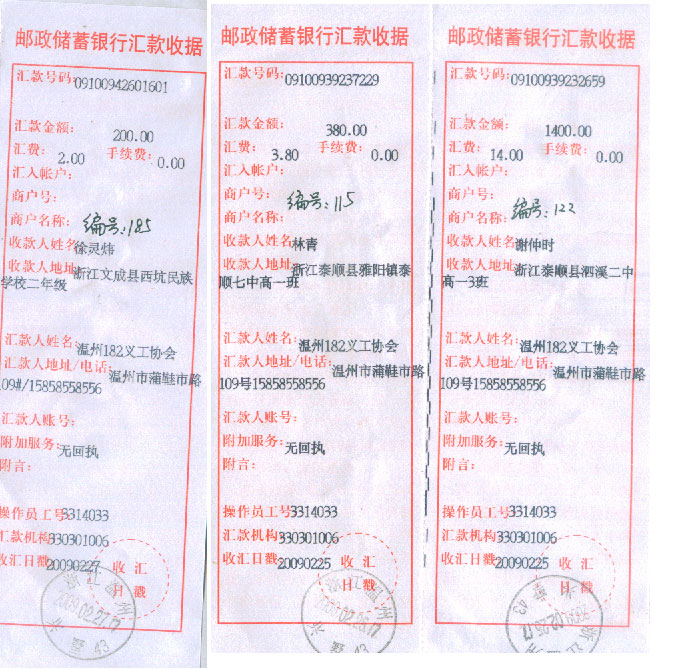 邮政储蓄银行汇款收据
汇款号码:09100942601601
汇款金额: 200.00
汇费: 2.00 手续费: 0.00
汇入帐户:
商户号:
商户名称: 编号:185
收款人姓名徐灵炜
收款人地址浙江文成县西坑民族
学校二年级
汇款人姓名:温州182义工协会
汇款人地址/电话:温州市蒲鞋市路
109#/15858558556
汇款人账号:
附加服务:无回执
附言:
操作员工号3314033
汇款机构330301006
收汇日戳20090227 收汇
日戳
浙江温州
2009.02.27.17
邮政储蓄银行汇款收据
汇款号码:09100939237229
汇款金额: 380.00
汇费: 3.80 手续费: 0.00
汇入帐户:
商户号:
编号:115
商户名称:
收款人姓名林青
收款人地址浙江泰顺县雅阳镇泰
顺七中高一班
汇款人姓名:温州182义工协会
汇款人地址/电话:温州市蒲鞋市路
109号15858558556
汇款人账号:
附加服务:无回执
附言:
操作员工号3314033
汇款机构330301006
收汇日戳20090225 收汇
日戳
邮政储蓄银行汇款收据
汇款号码:09100939232659
汇款金额: 1400.00
汇费: 14.00 手续费: 0.00
汇入帐户:
商户号:
商户名称: 编号:122
收款人姓名谢仲时
收款人地址浙江泰顺县泗溪二中
高一3班
汇款人姓名:温州182义工协会
汇款人地址/电话:温州市蒲鞋市路
109号15858558556
汇款人账号:
附加服务:无回执
附言:
操作员工号3314033
汇款机构330301006
收汇日戳20090225 收汇
日戳